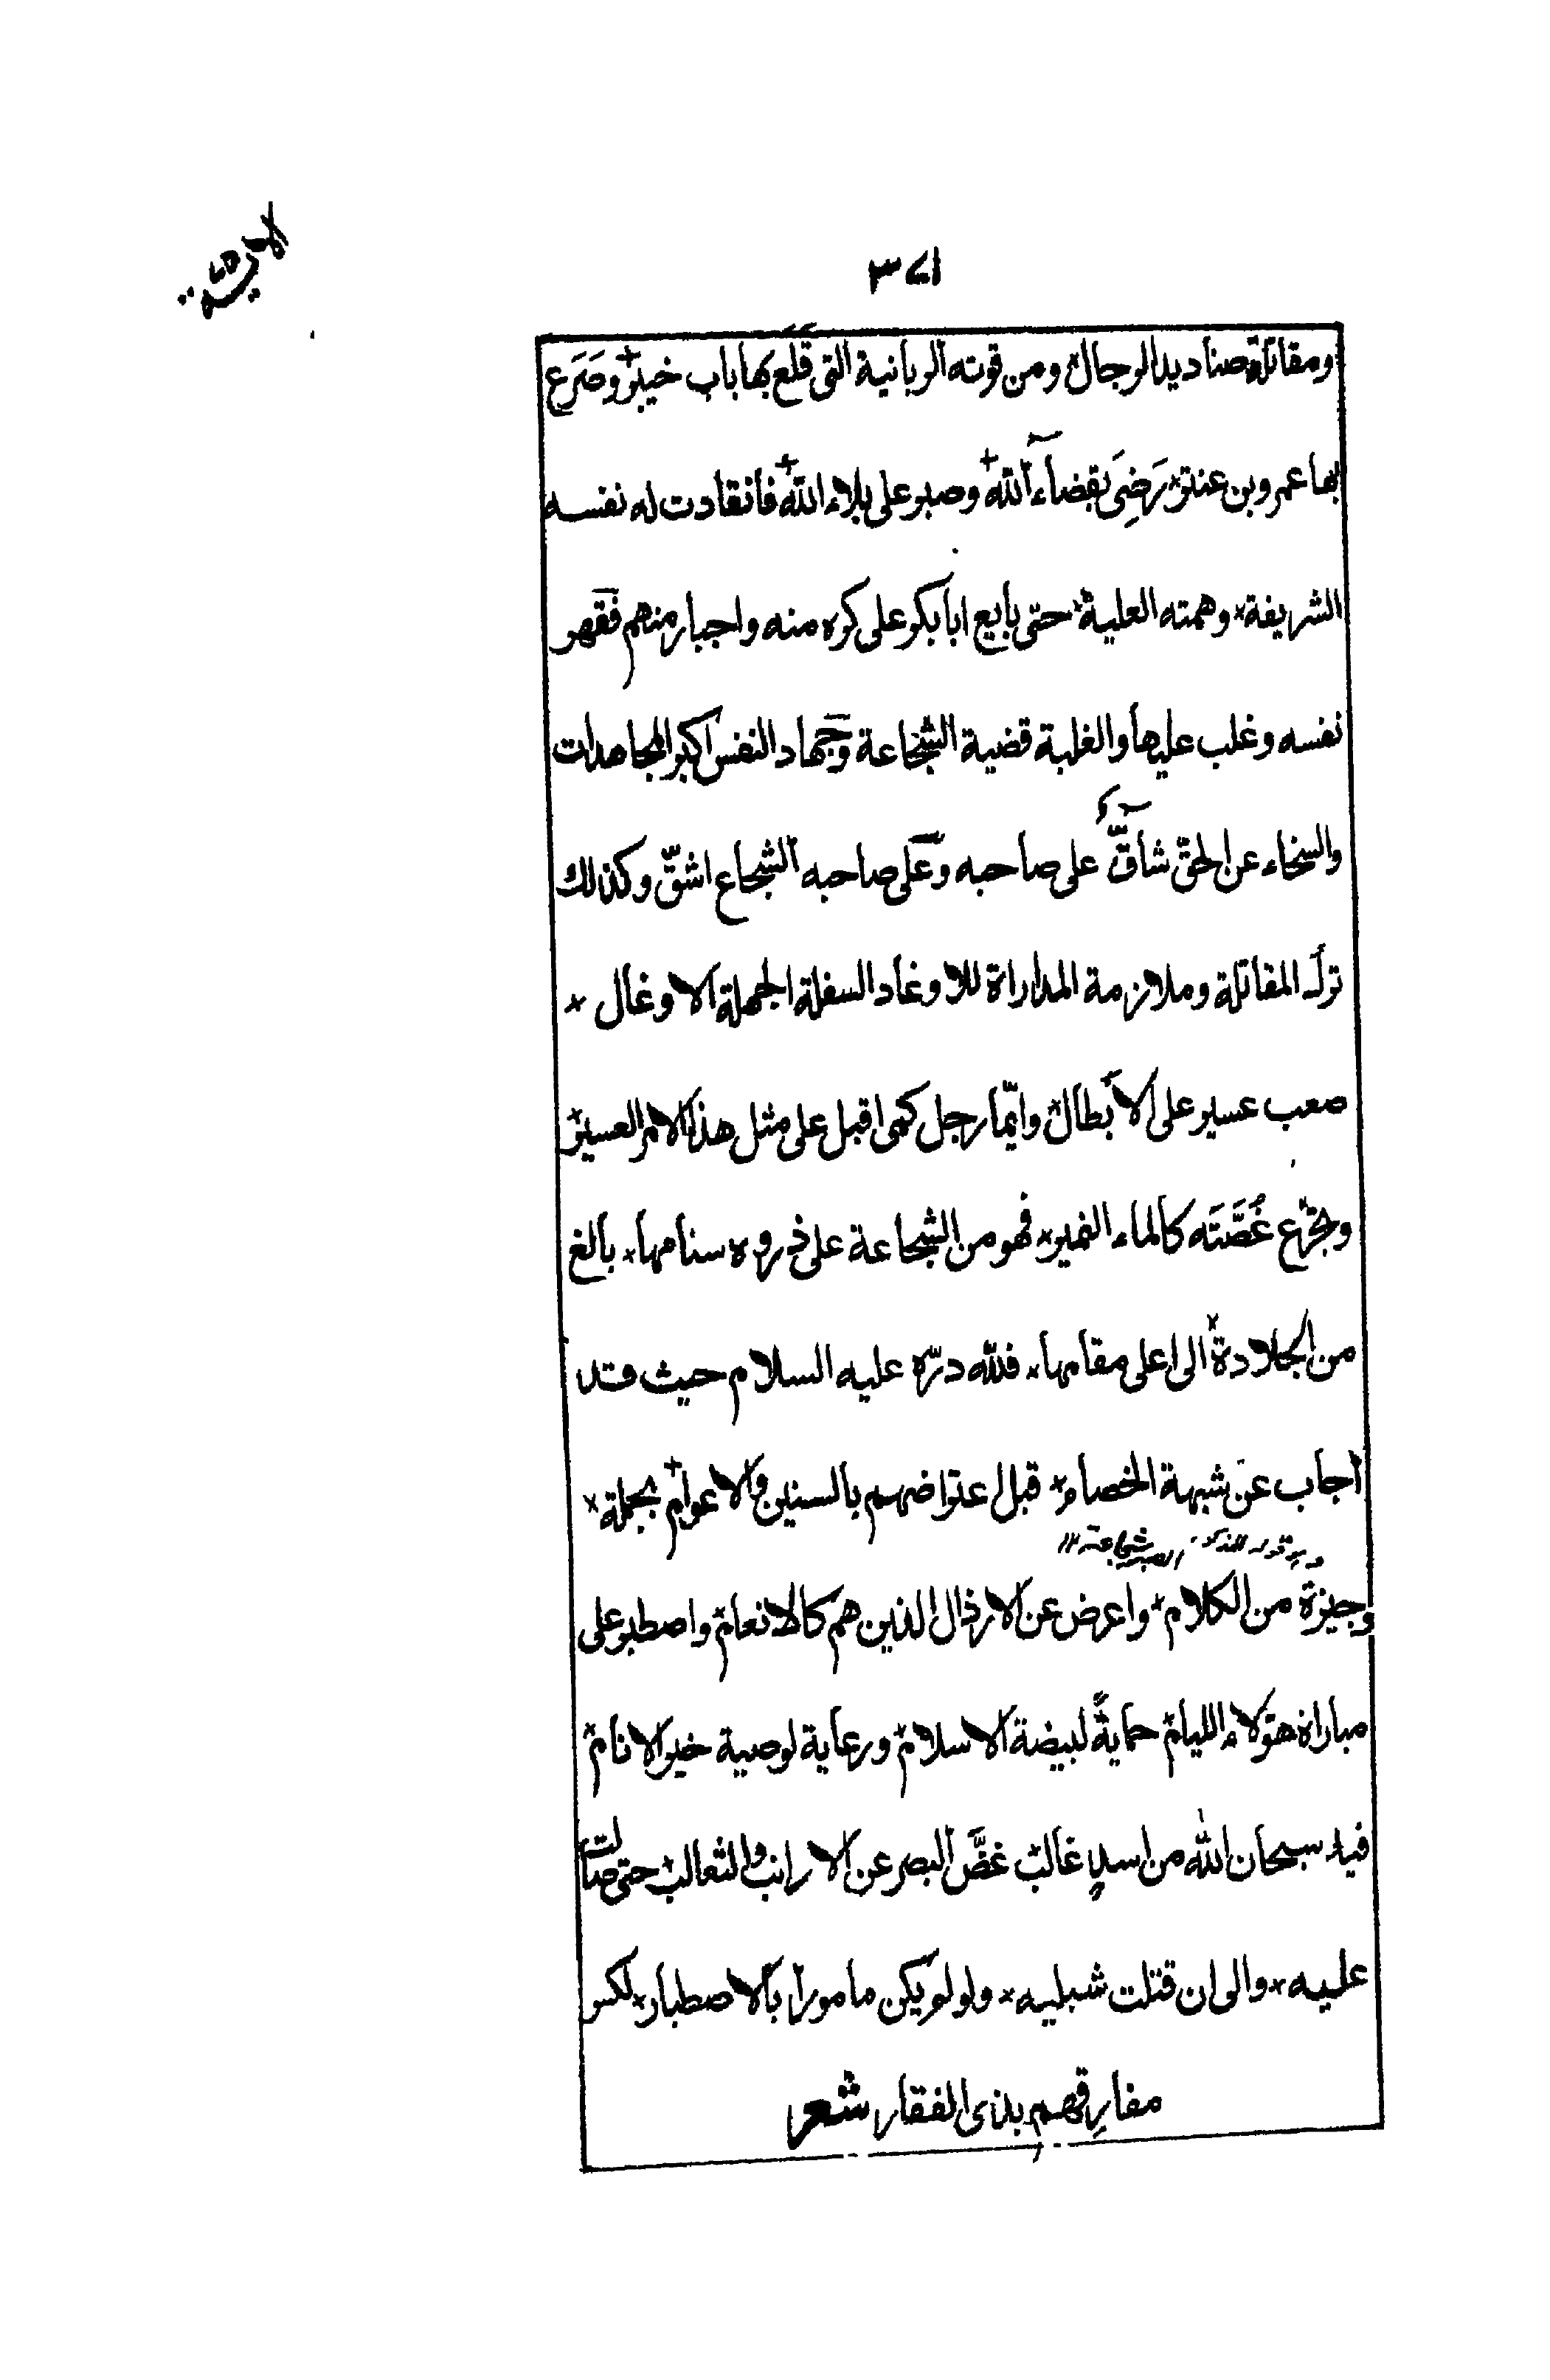 ٣٧١
ومقاتلة صناديد الرجال ومن قوته الربانية التى قَلَع بها باب خيبر وصَرَع
بها عمرو بن عنتر رَضِىَ بقضاء الله وصبر على بلاء الله فانقادت له نفسه
الشريفة وهمته العلية حتى بايع ابا بكر على كره منه واجبار منهم فقهر
نفسه وغلب عليها والغلبة قضية الشجاعة وجهاد النفس اكبر المجاهدات
والسخاء عن الحقّ شاقّ على صاحبه وعلى صاحبه الشجاع اشقّ وكذلك
ترك المقاتلة وملازمة المداراة للاوغاد السفلة الجهلة الاوغال
صعب عسير على الأبطال وايّما رجل كمى اقبل على مثل هذا الامر العسير
وتجرّع غُصَّتَه كالماء النمير فهو من الشجاعة على ذروه سنامها بالغ
من الجلادة الى اعلى مقامها فلله درّه عليه السلام حيث قد
اجاب عن شبهة الخصام قبل اعتراضهم بالسنين والاعوام بجملة
وهو قوله المذكور الصبر شجاعة ١٢
وجيزة من الكلام واعرض عن الارذال الذين هم كالانعام واصطبر على
مباراة هؤلاء الليام حمايةً لبيضة الاسلام ورعاية لوصية خير الانام
فيا سبحان الله من اسدٍ غالب غضَّ البصر عن الارانب والثعالب حتى صالت
عليه والى ان قتلت شبليه ولو لم يكن مامورا بالاصطبار لكسر
مفارقهم بذى الفقار شعر